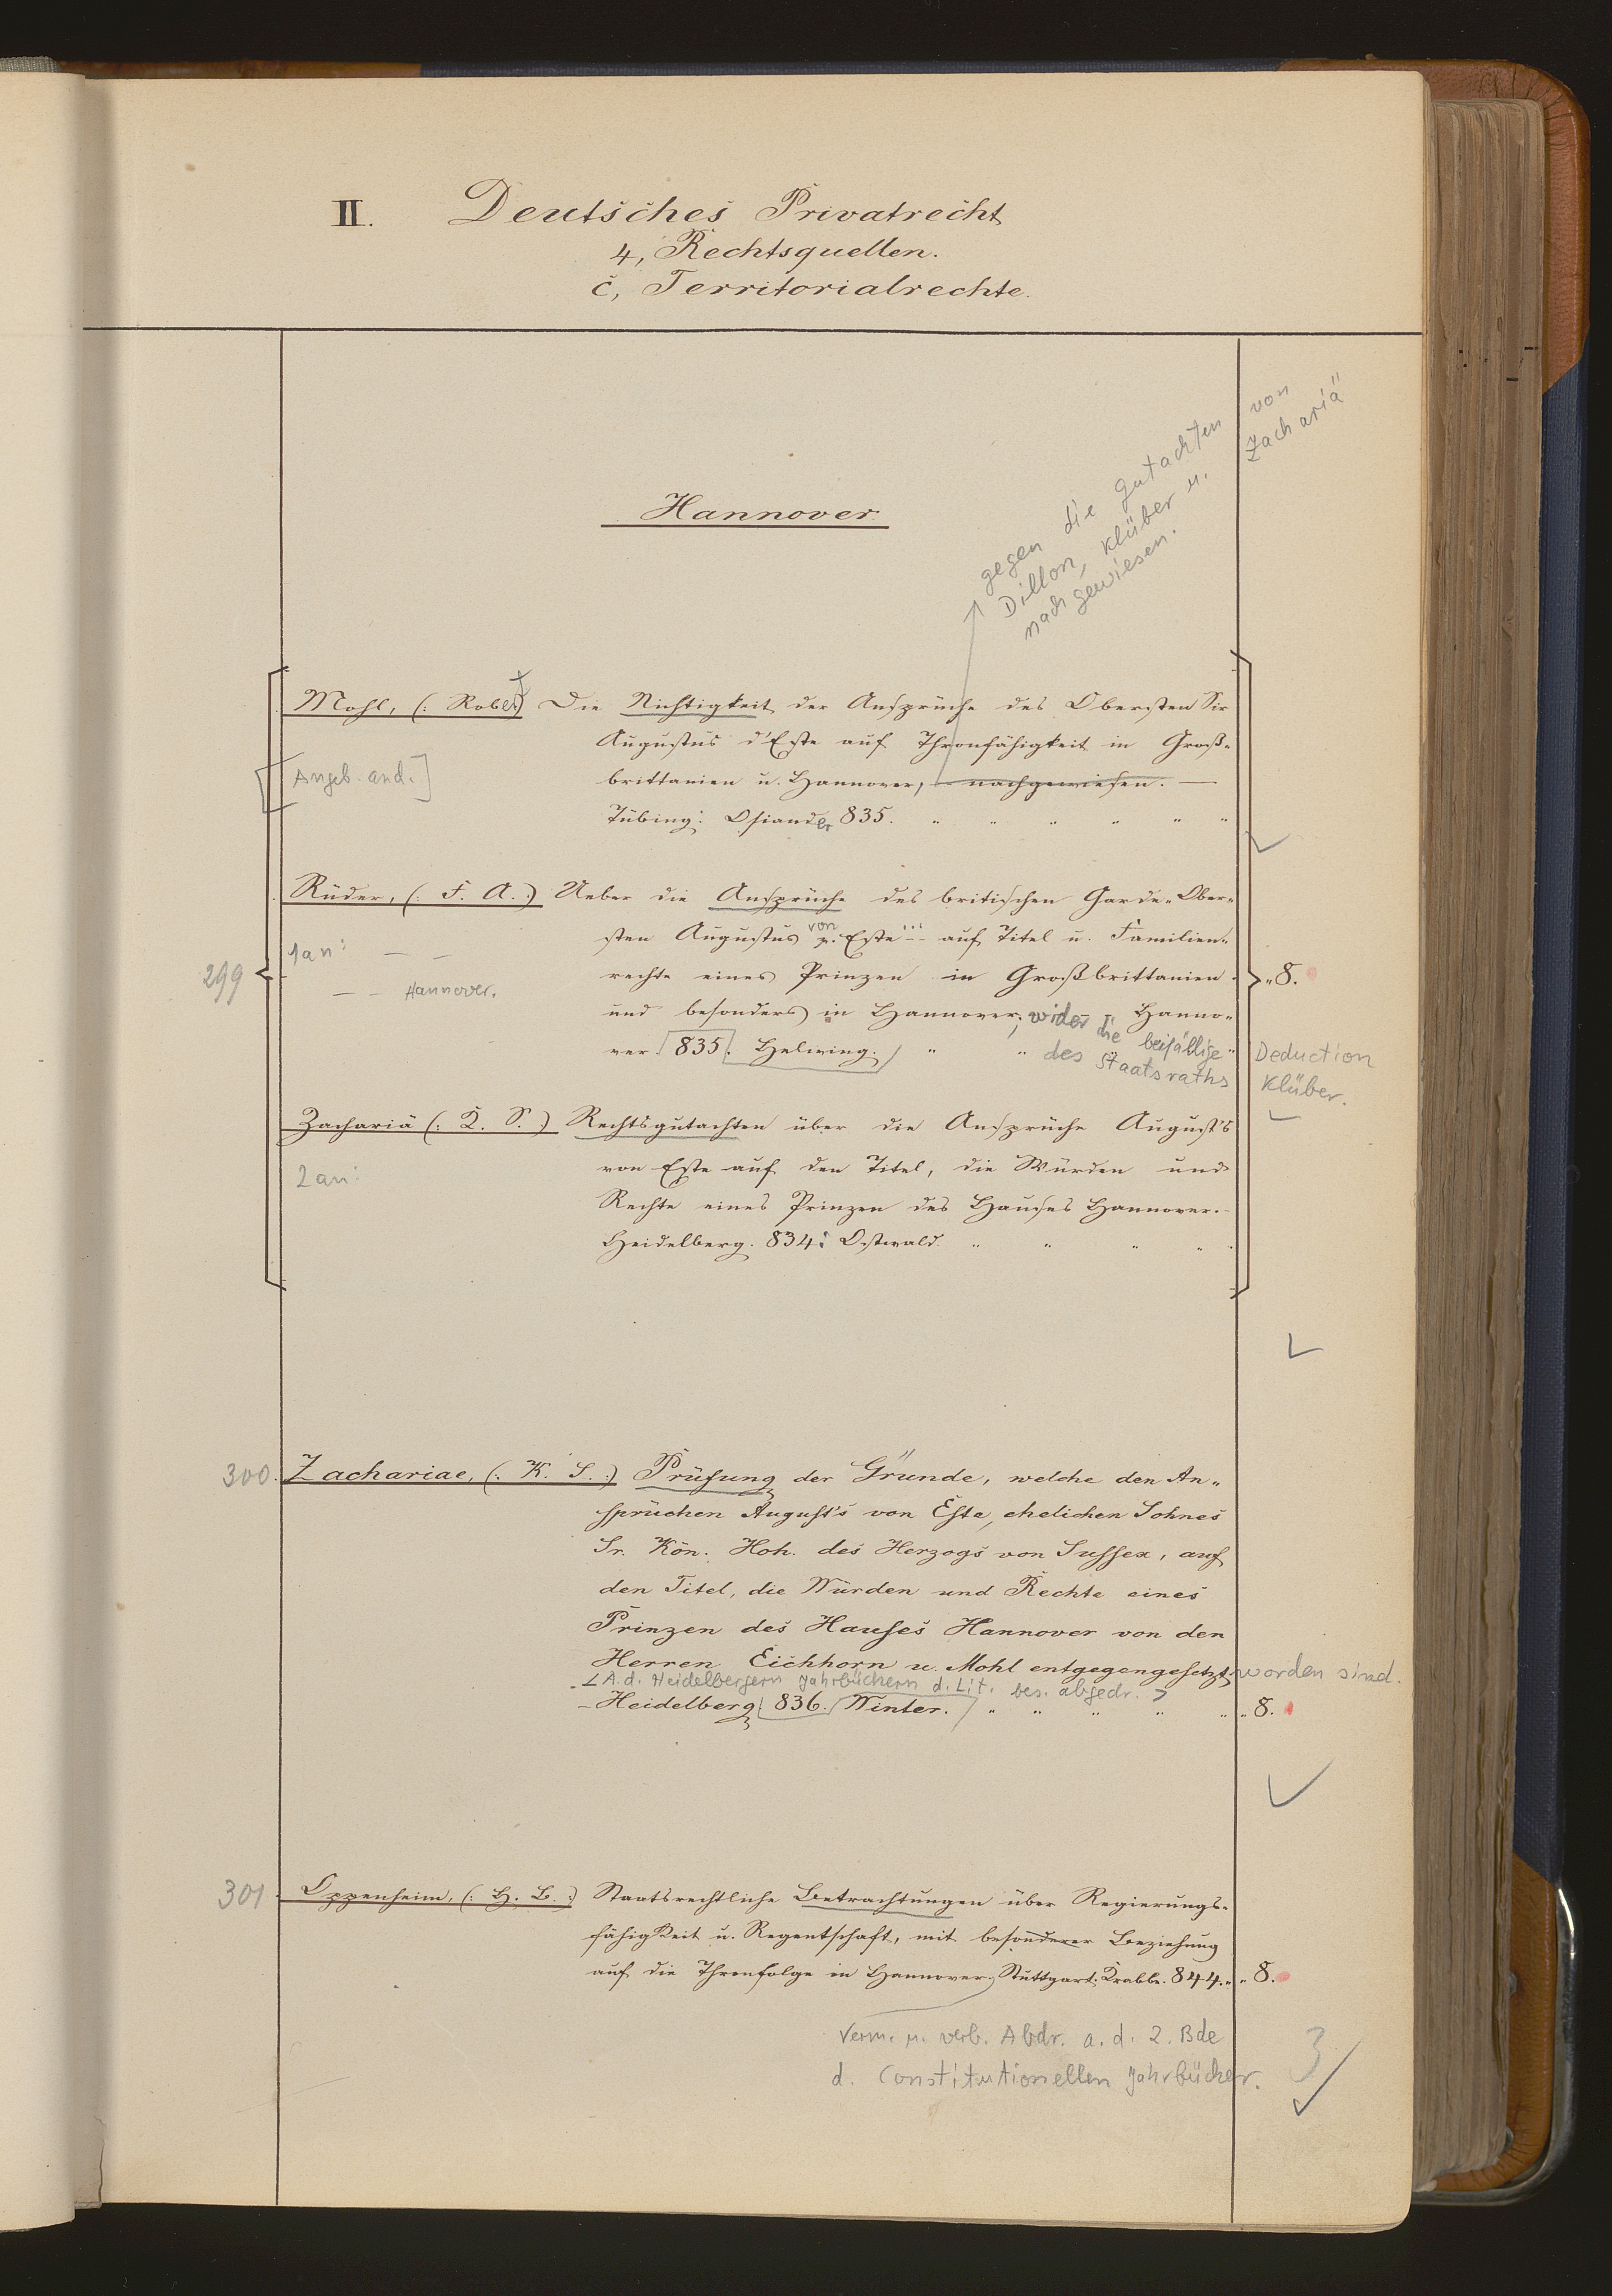 II. Deutsches Privatrecht
4, Rechtsquellen.
c, Territorialrechte.
Hannover.
gegen die Gutachten von
Dillon, Klüber u. Zachariä
nachgewiesen.
Mohl, (: Robert) Die Nichtigkeit der Ansprüche des Obersten Sir
Augustus d'Este auf Thronfähigkeit in Groß-
Angeb. and.]
brittanien u. Hannover, nachgewiesen. —
Tübing: Osiander 835. " " " " " "
299
Rüder, (: F. A. :) Ueber die Ansprüche des britischen Garde-Ober-
sten Augustus von Este ... auf Titel u. Familien-
1an: — —
rechte eines Prinzen in Großbrittanien " 8.
— — Hannover.
und besonders in Hannover; wider die beifällige Hanno-
ver. 835. Helwing. " "
Deduction
des Staatsraths Klüber.
Zachariä (: K. S. :) Rechtsgutachten über die Ansprüche August's
2an:
von Este auf den Titel, die Würden und
Rechte eines Prinzen des Hauses Hannover.
Heidelberg. 834: Ostwald. " " " "
300. Zachariae, (: K. S. :) Prüfung der Gründe, welche den An-
sprüchen August's von Este, ehelichen Sohnes
Sr. Kön. Hoh. des Herzogs von Sussex, auf
den Titel, die Würden und Rechte eines
Prinzen des Hauses Hannover von den
Herren Eichhorn u. Mohl entgegengesetzt worden sind.
< A. d. Heidelbergern Jahrbüchern d. Lit. bes. abgedr. >
- Heidelberg 836. Winter. " " " " " " 8.
301 Oppenheim, (: H. B. :) Staatsrechtliche Betrachtungen über Regierungs-
fähigkeit u. Regentschaft, mit besonderer Beziehung
auf die Thronfolge in Hannover. Stuttgart. Krabbe. 844. " " 8.
Verm. u. verb. Abdr. a. d. 2. Bde
d. Constitutionellen Jahrbücher.
3